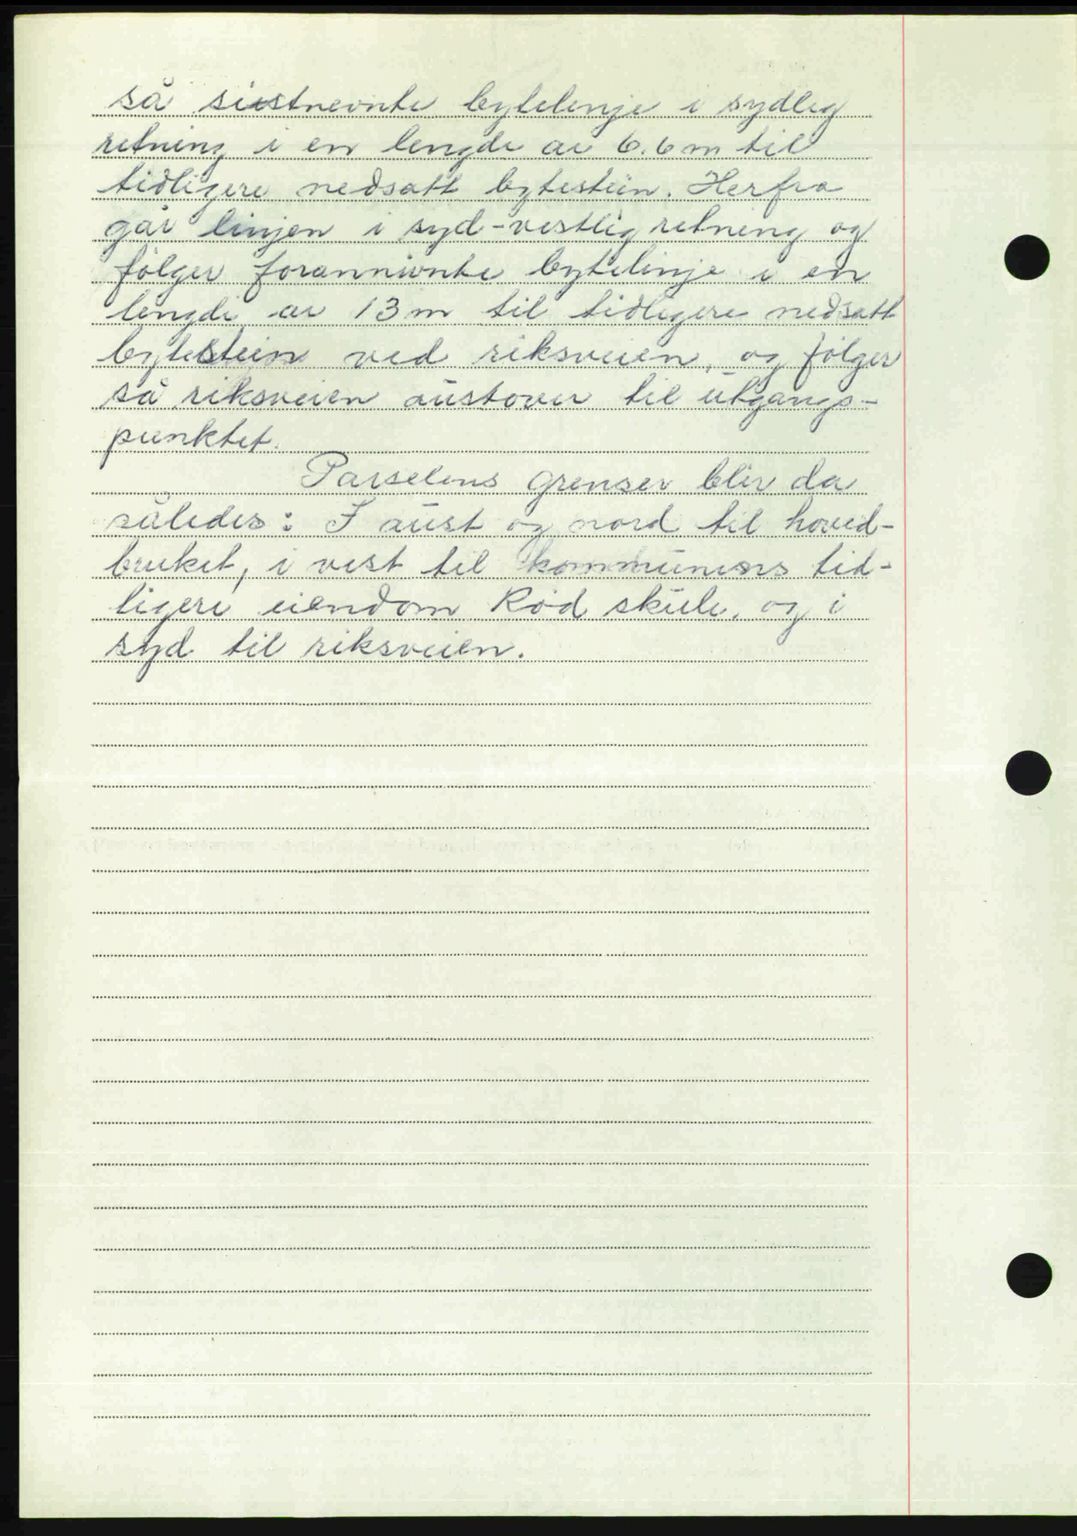 så sistnevnte bytelinje i sydleg
retning i en lengde av 6.6 m til
tidligere nedsatt bytestein. Herfra
går linjen i syd-vestlig retning og
følger forannevnte bytelinje i en
lengde av 13 m til tidligere nedsatt
bytestein ved riksveien, og følger
så riksveien austover til utgangs-
punktet.
Parselens grenser blir da
således: I aust og nord til hoved-
bruket, i vest til kommunens tid-
ligere eiendom Rød skule, og i
syd til riksveien.